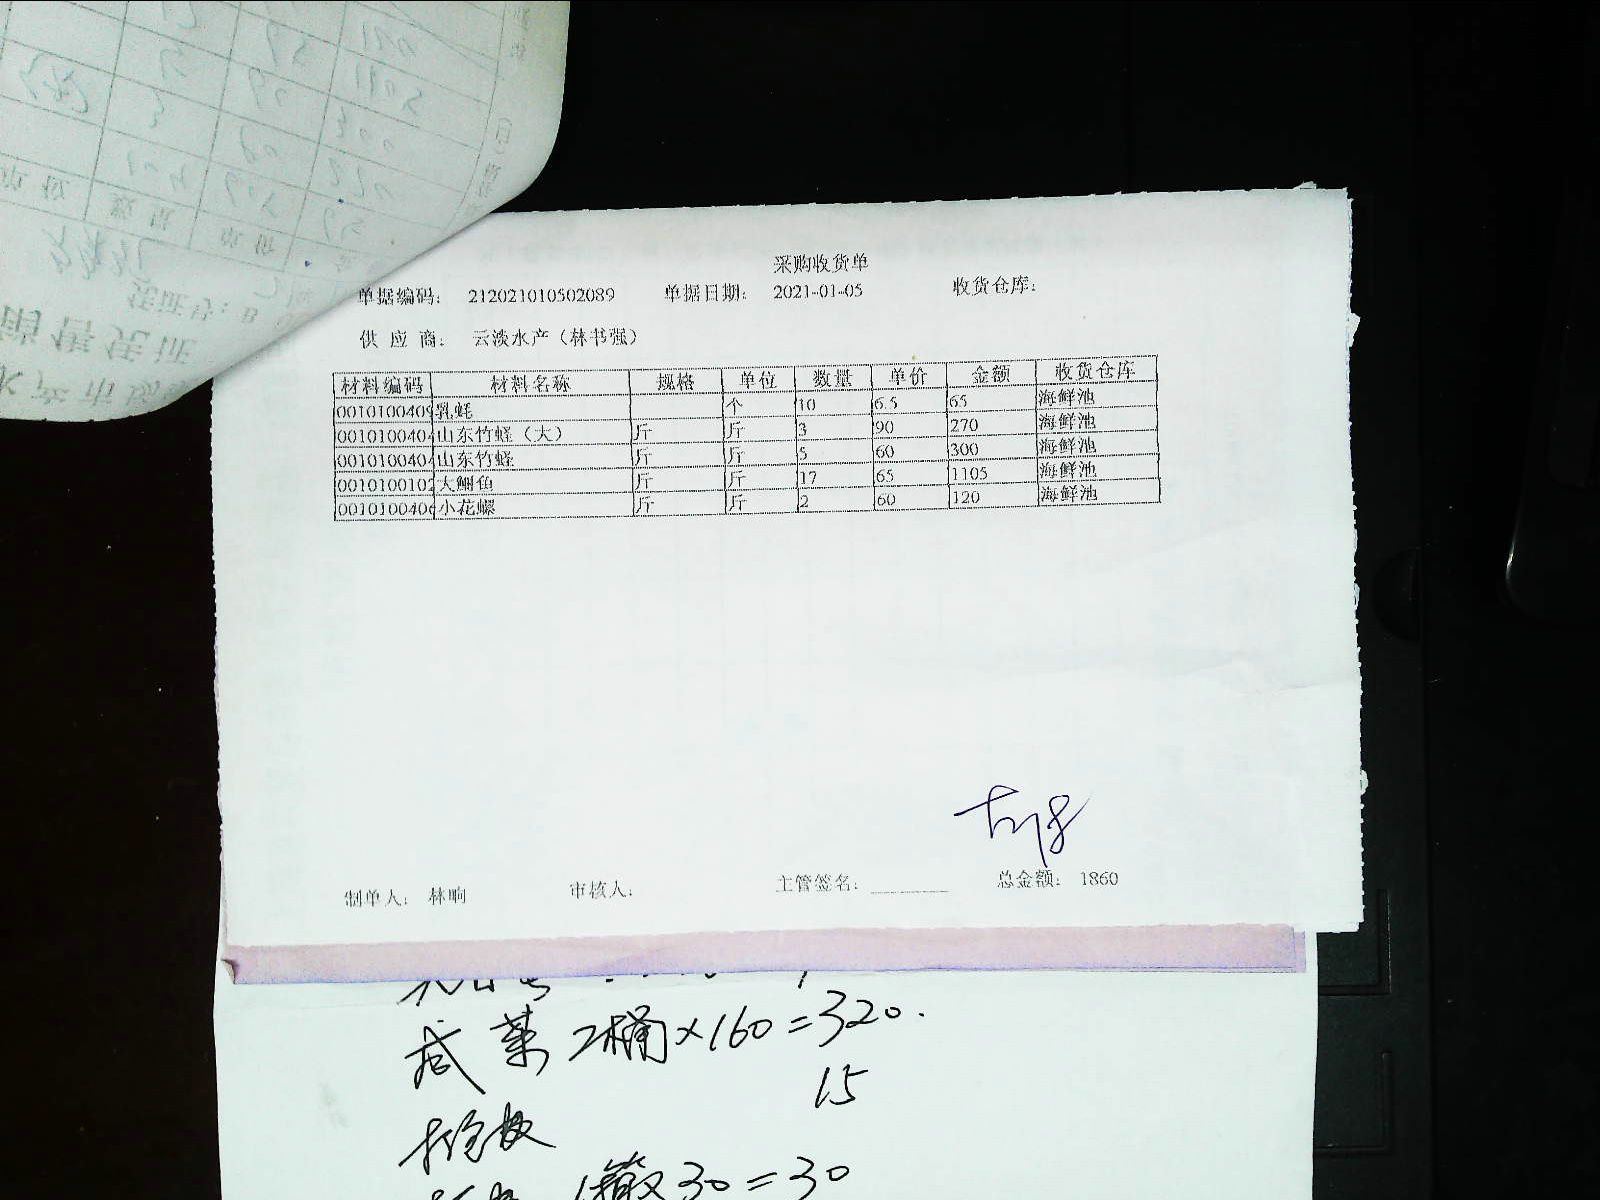 采购收货单
单据编码： 212021010502089 单据日期： 2021-01-05 收货仓库：
供应商： 云淡水产（林书强）
材料编码 材料名称 规格 单位 数量 单价 金额 收货仓库
0010100409 乳蚝 个 10 6.5 65 海鲜池
001010040 山东竹蛏（大） 斤 斤 3 90 270 海鲜池
001010040 山东竹蛏 斤 斤 5 60 300 海鲜池
0010100102 大鮰鱼 斤 斤 17 65 1105 海鲜池
001010040 小花螺 斤 斤 2 60 120 海鲜池
制单人： 林晌 审核人： 主管签名： 总金额： 1860
咸菜 2桶×160=320.
15
30=30